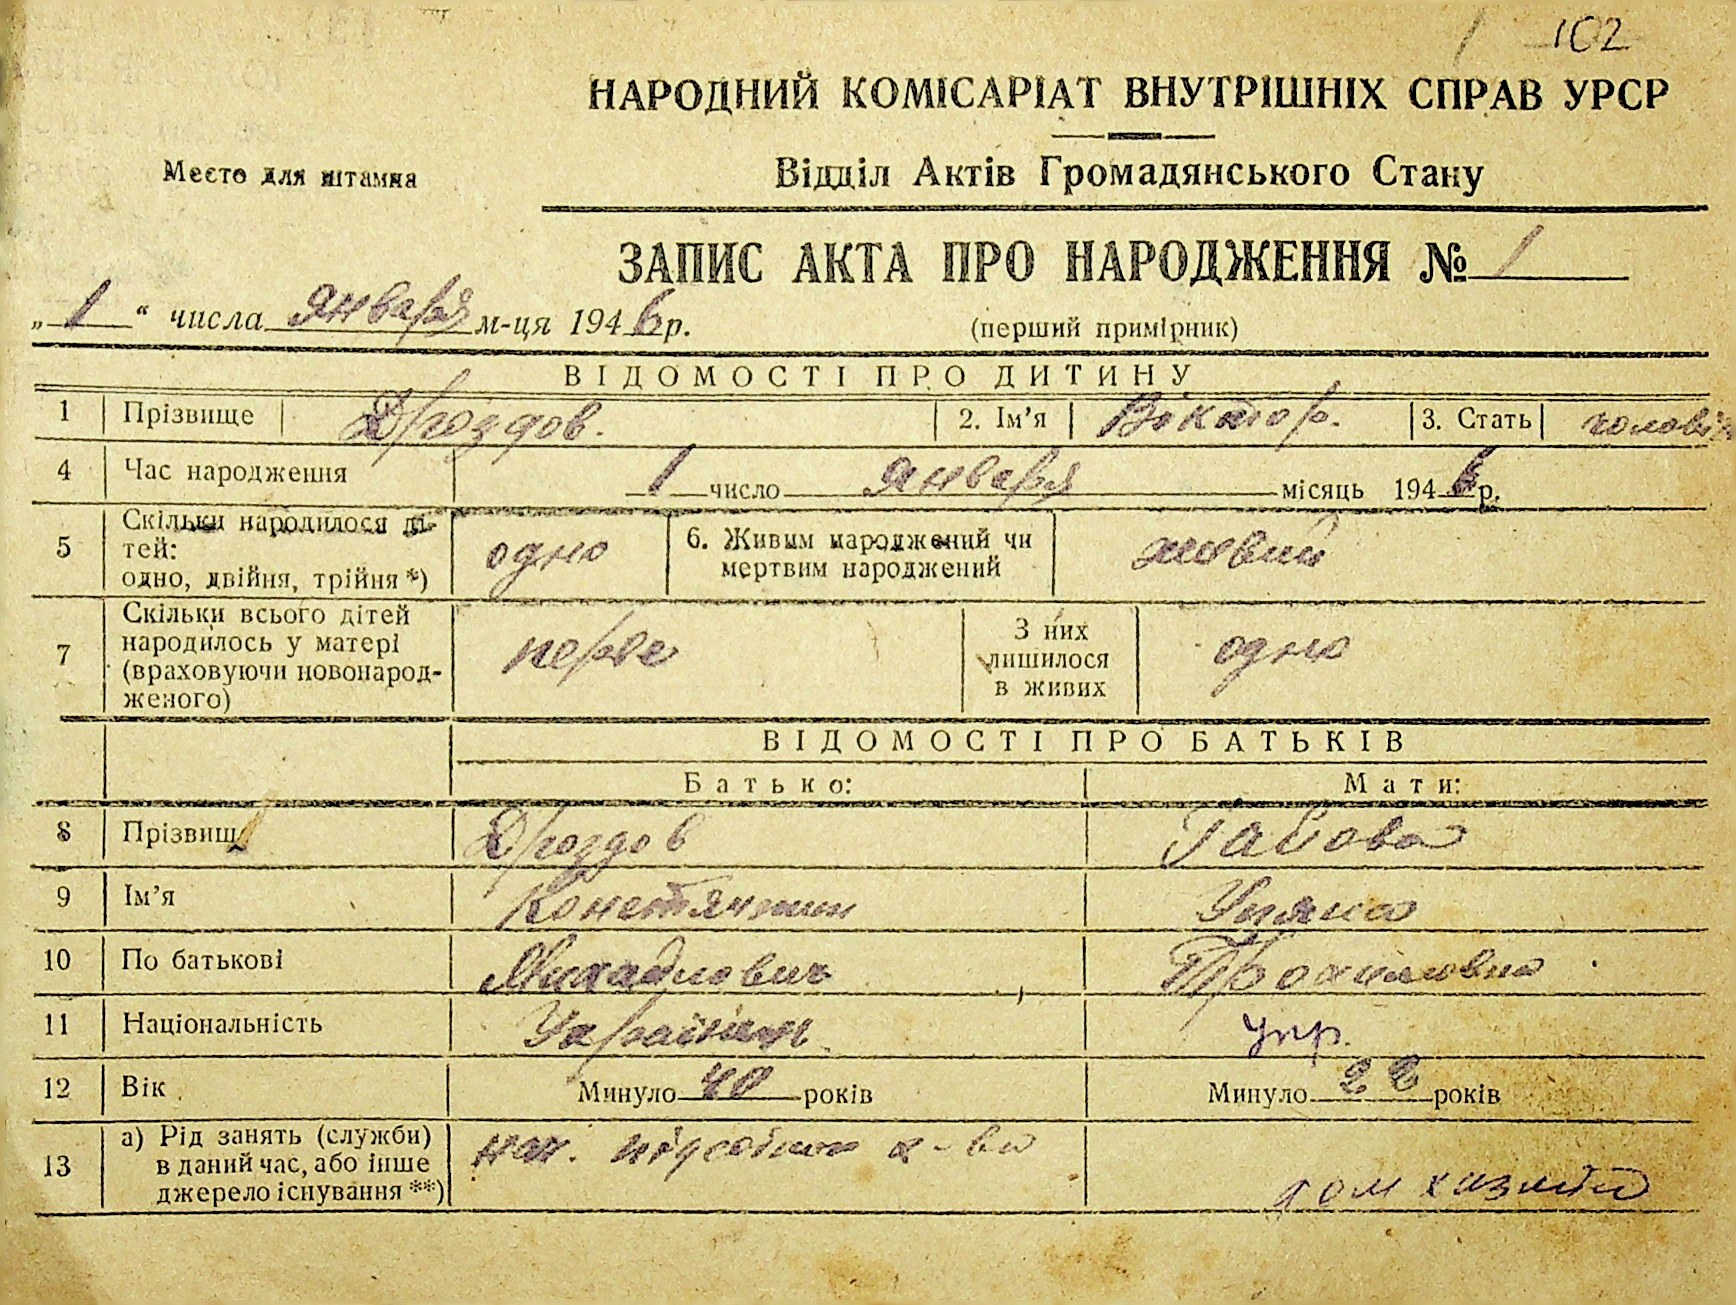 102
НАРОДНИЙ КОМІСАРІАТ ВНУТРІШНІХ СПРАВ УРСР
Место для штампа
Відділ Актів Громадянського Стану
ЗАПИС АКТА ПРО НАРОДЖЕННЯ № 1
„1“ числа января м-ця 1946 р.
(перший примірник)
ВІДОМОСТІ ПРО ДИТИНУ
1 Прізвище Дроздов. 2. Ім’я Віктор. 3. Стать чоловік
4 Час народження 1 число января місяць 1946 р.
5 Скільки народилося ді-
тей:
одно, двійня, трійня *) одно 6. Живим народжений чи
мертвим народжений живий
7 Скільки всього дітей
народилось у матері
(враховуючи новонарод-
женого) перве З них
лишилося
в живих одно
ВІДОМОСТІ ПРО БАТЬКІВ
Батько: Мати:
8 Прізвищ Дроздов
9 Ім’я Константин Уляна
10 По батькові Михайлович
11 Національність Українець укр.
12 Вік Минуло 40 років Минуло 22 років
13 а) Рід занять (служби)
в даний час, або інше
джерело існування **) нач. х-ва
дом